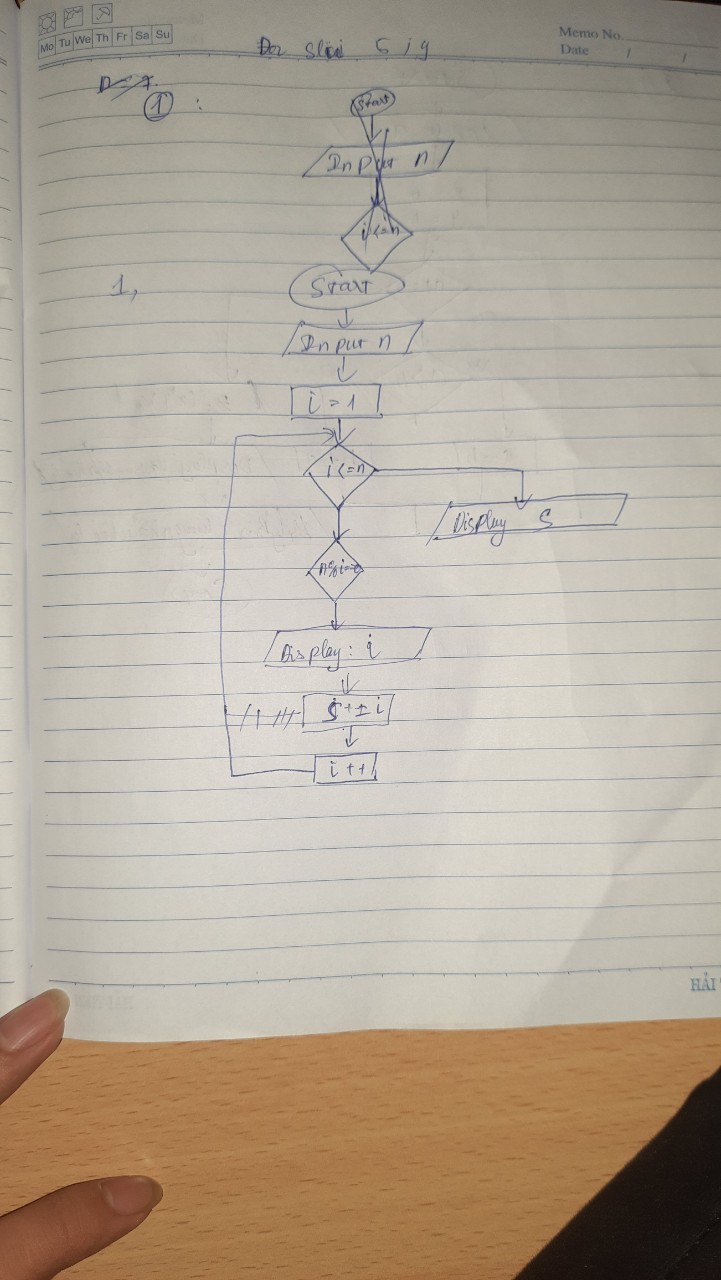 Mo Tu We Th Fr Sa Su
Memo No.
Date / /
5 ; 9
1 :
Start
Input n
i <= n
1,
Start
Input n
i = 1
i <= n
Display S
n%i==0
Display: i
S += i
i++
HẢI